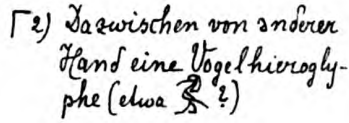 ⌈2) Dazwischen von anderer
Hand eine Vogelhierogly-
phe (etwa ?)